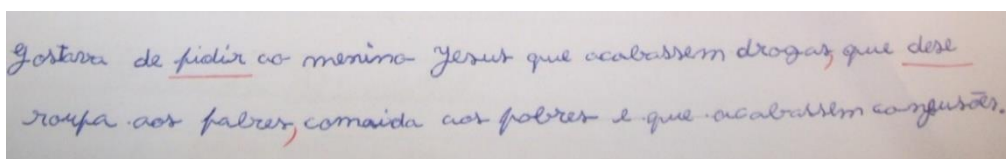 Gostava de pidir ao menino Jesus que acabassem drogas, que dese
roupa aos pobres, comaida aos pobres e que acabassem confusões.